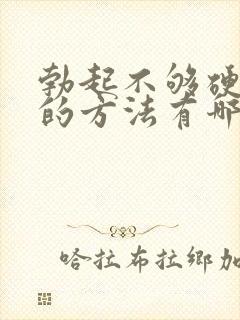 勃起不够硬
的方法有哪
哈拉布拉鄉加